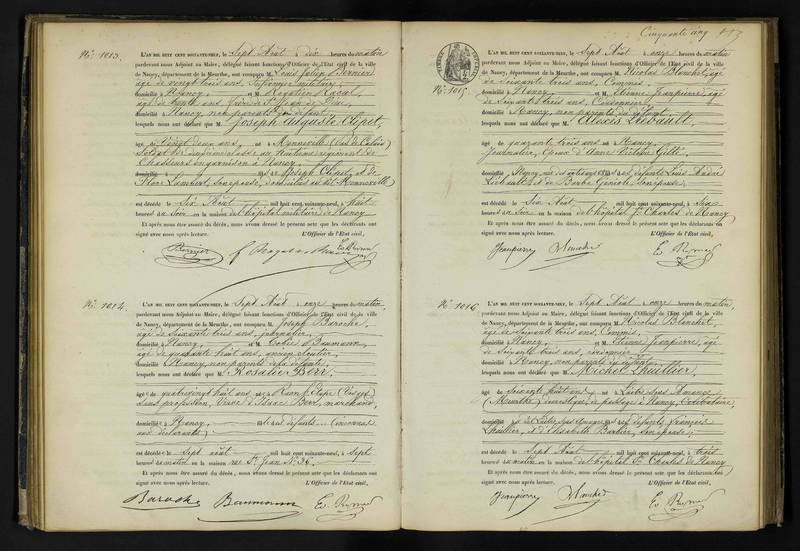 Cinquante cinq
N° 1013.
L'AN MIL HUIT CENT SOIXANTE-NEUF, le Sept Août à dix heures du matin
pardevant nous Adjoint au Maire, délégué faisant fonctions d'Officier de l'État civil de la ville
de Nancy, département de la Meurthe, ont comparu M. Louis Julien
âgé de vingt trois ans, Infirmier militaire
domicilié à Nancy et M. Rogatien Macal
âgé de trente ans, frère de St Jean de Dieu,
domicilié à Nancy, non parents du défunt,
lesquels nous ont déclaré que M. Joseph Auguste Clipet,
âgé de Vingt deux ans, né à Menneville (Pas de Calais)
Soldat de au huitième régiment de
Chasseurs en garnison à Nancy
domicilié fils de Joseph Clipet, et de
Flore Lambert, son épouse, domiciliés au dit Menneville
est décédé le Six Août mil huit cent soixante-neuf, à huit
heures du Soir en la maison de l'hôpital militaire de Nancy
Et après nous être assuré du décès, nous avons dressé le présent acte que les déclarants ont
signé avec nous après lecture. L'Officier de l'État civil,
N° 1014.
L'AN MIL HUIT CENT SOIXANTE-NEUF, le Sept Août à onze heures du matin,
pardevant nous Adjoint au Maire, délégué faisant fonctions d'Officier de l'État civil de la ville
de Nancy, département de la Meurthe, ont comparu M. Joseph Baroche,
âgé de Soixante trois ans, journalier,
domicilié à Nancy et Baumann,
âgé de quarante huit ans, ancien
domicilié à Nancy, non parents de la défunte,
lesquels nous ont déclaré que M. Rosalie Berr,
âgée de quatrevingt huit ans, née à Raon l'Étape (Vosges)
Sans profession, Veuve d'Isaac Berr, marchand,
domiciliée à Nancy, fille de défunts (inconnus
aux déclarants)
est décédée le Sept août mil huit cent soixante-neuf, à Sept
heures du matin en la maison rue St Jean N° 36.
Et après nous être assuré du décès, nous avons dressé le présent acte que les déclarants ont
signé avec nous après lecture. L'Officier de l'État civil,
Baroche Baumann
N° 1015.
L'AN MIL HUIT CENT SOIXANTE-NEUF, le Sept Août à onze heures du matin
pardevant nous Adjoint au Maire, délégué faisant fonctions d'Officier de l'État civil de la ville
de Nancy, département de la Meurthe, ont comparu M. Nicolas Blanchet, âgé
de Soixante trois ans, Commis,
domicilié à Nancy et M. Etienne Jeanpierre, âgé
de Soixante trois ans, Cordonnier,
domicilié à Nancy, non parents du défunt,
lesquels nous ont déclaré que M. Alexis Liébault,
âgé de quarante trois ans né à Nancy,
Journalier, Epoux d'Anne
domicilié à Nancy, fils de défunt Louis André
Liébault et de Barbe son épouse
est décédé le Six Août mil huit cent soixante-neuf, à Six
heures du Soir en la maison de l'hôpital St Charles de Nancy
Et après nous être assuré du décès, nous avons dressé le présent acte que les déclarants ont
signé avec nous après lecture. L'Officier de l'État civil,
Jeanpierre Blanchet
N° 1016.
L'AN MIL HUIT CENT SOIXANTE-NEUF, le Sept Août à onze heures du matin,
pardevant nous Adjoint au Maire, délégué faisant fonctions d'Officier de l'État civil de la ville
de Nancy, département de la Meurthe, ont comparu M. Nicolas Blanchet,
âgé de Soixante trois ans, Commis,
domicilié à Nancy et M. Etienne Jeanpierre, âgé
de Soixante trois ans, cordonnier,
domicilié à Nancy, non parents du défunt,
lesquels nous ont déclaré que M. Michel Lhuillier,
âgé de Soixante huit ans, né à Laître sous Amance
(Meurthe) domestique, de passage à Nancy, Célibataire,
domicilié à Laître sous Amance fils de défunts François
Lhuillier, et d'Elisabeth Barbier, son épouse
est décédé le Sept Août mil huit cent soixante-neuf, à trois
heures du matin en la maison de l'hôpital St Charles de Nancy
Et après nous être assuré du décès, nous avons dressé le présent acte que les déclarants ont
signé avec nous après lecture. L'Officier de l'État civil,
Jeanpierre Blanchet